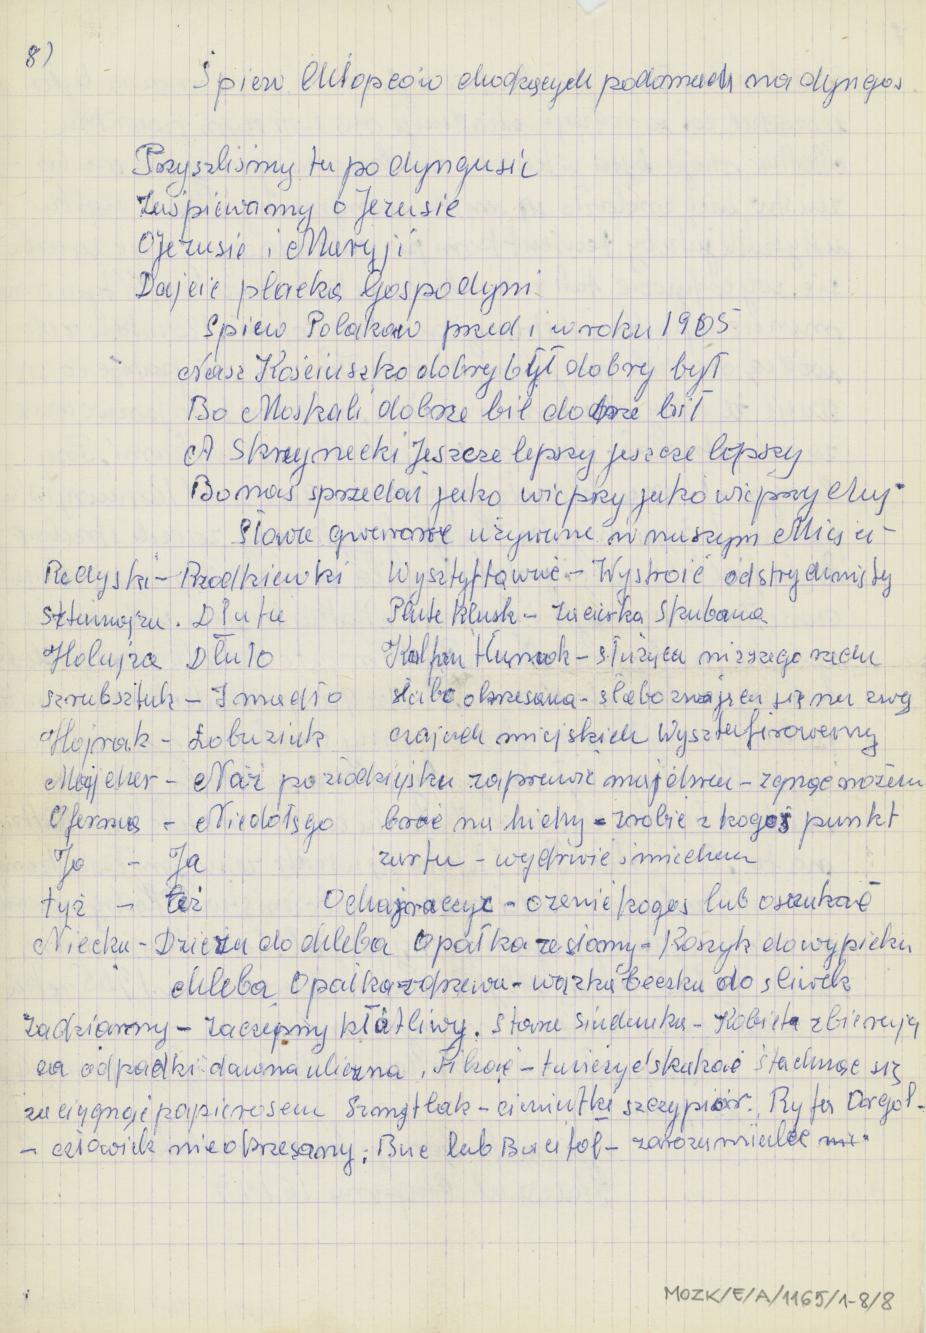 8)
Śpiew Chłopców chodzących podomach na dyngos
Przyszliśmy tu po dyngusie
Zaśpiewamy o Jezusie
O Jezusie i Maryji
Dajcie placka Gospodyni
Spiew Polaków przed i w roku 1905
Nasz Kościuszko dobry był dobry był
Bo Moskali dobrze bił dobrze bił
A Skrzynecki Jeszcze lepszy jeszcze lepszy
Bo nas sprzedał jako wieprzy jako wieprzy
Stare gwarowe używane w naszym Mieście
Redyski - Rzodkiewki Wysztyftować - Wystroić odstrychnięty
Sztamajza. Dłuto Plute kluski - zacirka Skubana
Holajza Dłuto służąca niższego rzędu
szrubsztak - Imadło słabo okrzesana - słabo znająca się na zwy
Hojrak - Łobuziak czajach miejskich Wysztafirowany
Majcher - Nóż po złodziejsku zaprawić majchra - zepnąć nożem
Oferma - Niedołęga brać na hichy - zrobić z kogoś punkt
Jo - Ja żartu - wydrwić śmiechem
tyż - też - ożenić kogoś lub oszukać
Niecka - Dzieża do chleba Opałka ze słomy - Koszyk do wypieku
chleba Opałka z drzewa - wąska beczka do śliwek
Zadziorny - Zaczepny kłótliwy. Stara - Kobieta zbierają
ca odpadki dawna uliczna, Fikać - Sztachnąć się
zaciągnąć papierosem - szczypior.
- człowiek nieokrzesany; Buc lub Bucifoł - zarozumialec
MOZK/E/A/1165/1-8/8